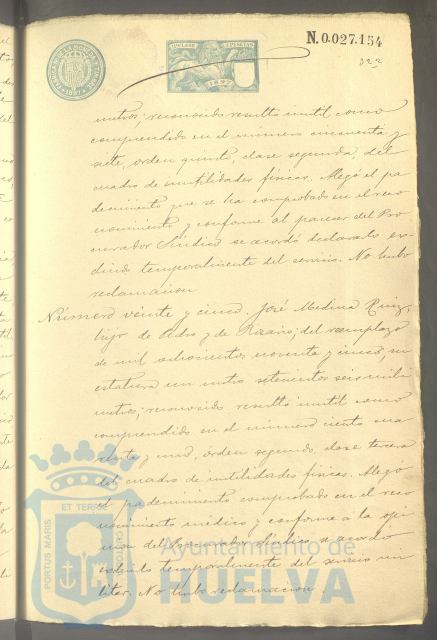 N.0.027.154
322
metros; reconocido resultó inutil como
comprendido en el número cincuenta y
siete, orden quinto, clase segunda, del
cuadro de inutilidades físicas. Alegó el pa
decimiento que se ha comprobado en el reco
nocimiento y conforme al parecer del Pro
curador Síndico se acordó declararlo ex-
cluido temporalmente del servicio. No hubo
reclamacion
Número veinte y cinco. José Medina Ruiz,
hijo de Pedro y de Rosario; del reemplazo
de mil ochocientos noventa y cinco, su
estatura un metro setecientos seis mili
metros; reconocido resultó inutil como
comprendido en el número ciento cua
renta y uno, órden segundo, clase tercera
del cuadro de inutilidades físicas. Alegó
el padecimiento comprobado en el reco
nocimiento médico y conforme á la opi
nion del Procurador Síndico se acordó
excluirlo temporalmente del servicio mi
litar. No hubo reclamacion.
PORTUS MARIS
ET TERRAE
Ayuntamiento de
HUELVA